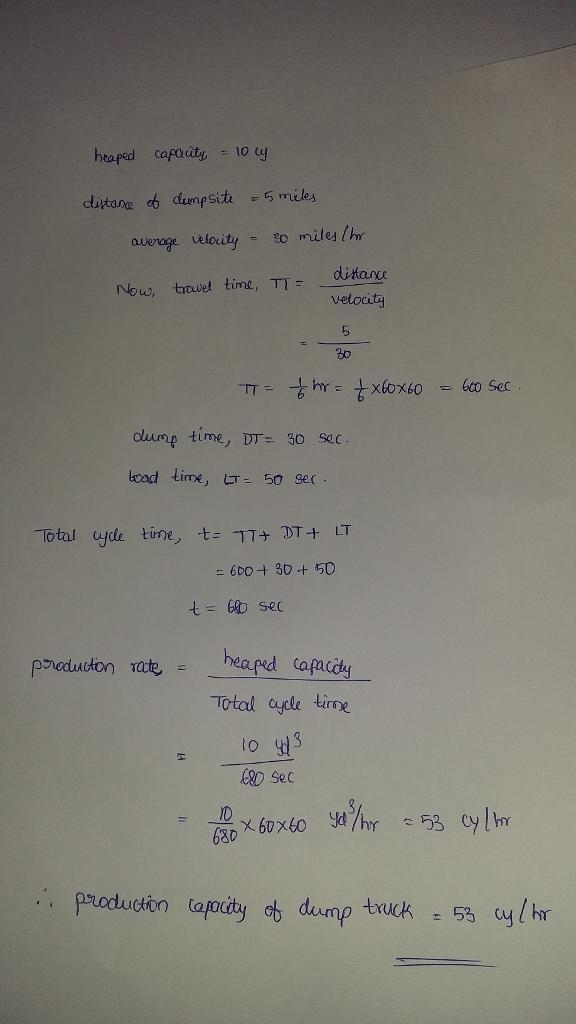 heaped capacity = 10 cy
distance of dumpsite = 5 miles
average velocity = 30 miles/hr
Now, travel time, TT = distance / velocity
= 5 / 30
TT = 1/6 hr = 1/6 × 60×60 = 600 sec.
dump time, DT = 30 sec.
load time, LT = 50 sec.
Total cycle time, t = TT + DT + LT
= 600 + 30 + 50
t = 680 sec
production rate = heaped capacity / Total cycle time
= 10 yd³ / 680 sec
= 10/680 × 60×60 yd³/hr = 53 cy/hr
∴ production capacity of dump truck = 53 cy/hr